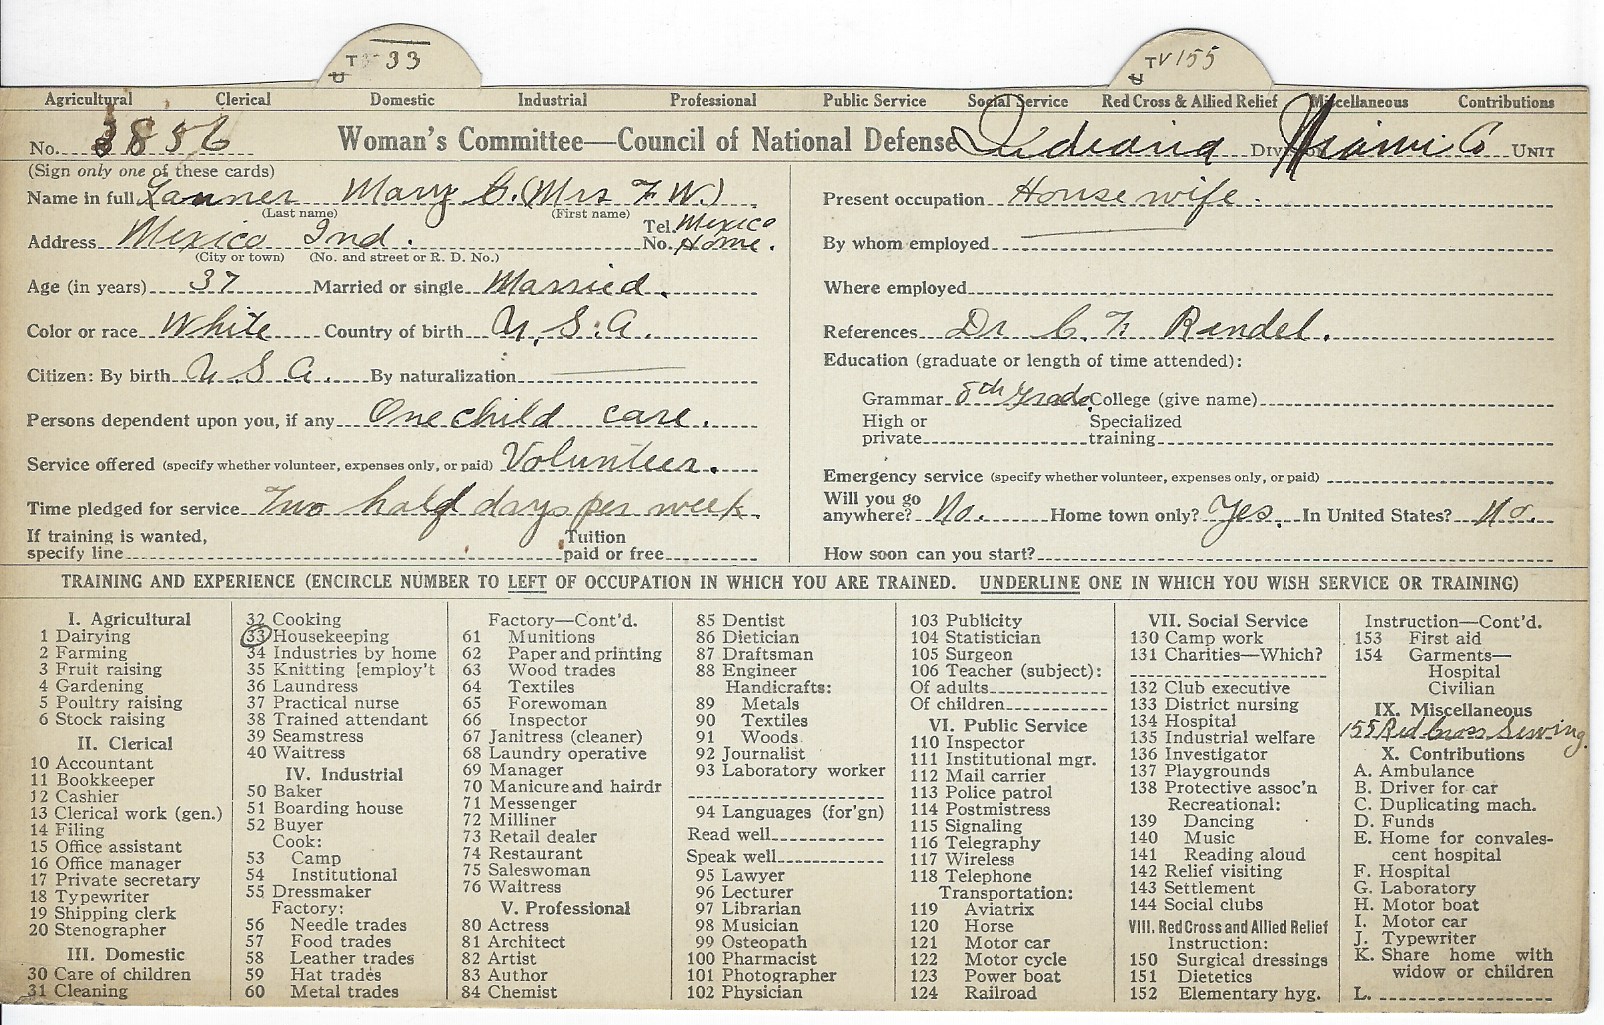 T 33
TV 155
Agricultural Clerical Domestic Industrial Professional Public Service Social Service Red Cross & Allied Relief Miscellaneous Contributions
No. 3856 Woman's Committee—Council of National Defense Indiana Division Miami Co UNIT
(Sign only one of these cards)
Name in full Lanner Mary C. (Mrs F. W.)
(Last name) (First name)
Address Mexico Ind. Tel. No. Mexico Home.
(City or town) (No. and street or R. D. No.)
Age (in years) 37 Married or single Married.
Color or race White Country of birth U.S.A.
Citizen: By birth U.S.A. By naturalization
Persons dependent upon you, if any One child care.
Service offered (specify whether volunteer, expenses only, or paid) Volunteer.
Time pledged for service Two half days per week.
If training is wanted, specify line Tuition paid or free
Present occupation Housewife.
By whom employed
Where employed
References Dr C. F. Rendel.
Education (graduate or length of time attended):
Grammar 8th Grade College (give name)
High or private Specialized training
Emergency service (specify whether volunteer, expenses only, or paid)
Will you go anywhere? No. Home town only? Yes. In United States? No.
How soon can you start?
TRAINING AND EXPERIENCE (ENCIRCLE NUMBER TO LEFT OF OCCUPATION IN WHICH YOU ARE TRAINED. UNDERLINE ONE IN WHICH YOU WISH SERVICE OR TRAINING)
I. Agricultural
1 Dairying
2 Farming
3 Fruit raising
4 Gardening
5 Poultry raising
6 Stock raising
II. Clerical
10 Accountant
11 Bookkeeper
12 Cashier
13 Clerical work (gen.)
14 Filing
15 Office assistant
16 Office manager
17 Private secretary
18 Typewriter
19 Shipping clerk
20 Stenographer
III. Domestic
30 Care of children
31 Cleaning
32 Cooking
33 Housekeeping
34 Industries by home
35 Knitting [employ't
36 Laundress
37 Practical nurse
38 Trained attendant
39 Seamstress
40 Waitress
IV. Industrial
50 Baker
51 Boarding house
52 Buyer
Cook:
53 Camp
54 Institutional
55 Dressmaker
Factory:
56 Needle trades
57 Food trades
58 Leather trades
59 Hat trades
60 Metal trades
Factory—Cont'd.
61 Munitions
62 Paper and printing
63 Wood trades
64 Textiles
65 Forewoman
66 Inspector
67 Janitress (cleaner)
68 Laundry operative
69 Manager
70 Manicure and hairdr
71 Messenger
72 Milliner
73 Retail dealer
74 Restaurant
75 Saleswoman
76 Waitress
V. Professional
80 Actress
81 Architect
82 Artist
83 Author
84 Chemist
85 Dentist
86 Dietician
87 Draftsman
88 Engineer
Handicrafts:
89 Metals
90 Textiles
91 Woods
92 Journalist
93 Laboratory worker
94 Languages (for'gn)
Read well
Speak well
95 Lawyer
96 Lecturer
97 Librarian
98 Musician
99 Osteopath
100 Pharmacist
101 Photographer
102 Physician
103 Publicity
104 Statistician
105 Surgeon
106 Teacher (subject):
Of adults
Of children
VI. Public Service
110 Inspector
111 Institutional mgr.
112 Mail carrier
113 Police patrol
114 Postmistress
115 Signaling
116 Telegraphy
117 Wireless
118 Telephone
Transportation:
119 Aviatrix
120 Horse
121 Motor car
122 Motor cycle
123 Power boat
124 Railroad
VII. Social Service
130 Camp work
131 Charities—Which?
132 Club executive
133 District nursing
134 Hospital
135 Industrial welfare
136 Investigator
137 Playgrounds
138 Protective assoc'n
Recreational:
139 Dancing
140 Music
141 Reading aloud
142 Relief visiting
143 Settlement
144 Social clubs
VIII. Red Cross and Allied Relief
Instruction:
150 Surgical dressings
151 Dietetics
152 Elementary hyg.
Instruction—Cont'd.
153 First aid
154 Garments—
Hospital
Civilian
IX. Miscellaneous
155 Red Cross Sewing
X. Contributions
A. Ambulance
B. Driver for car
C. Duplicating mach.
D. Funds
E. Home for convales-
cent hospital
F. Hospital
G. Laboratory
H. Motor boat
I. Motor car
J. Typewriter
K. Share home with
widow or children
L.